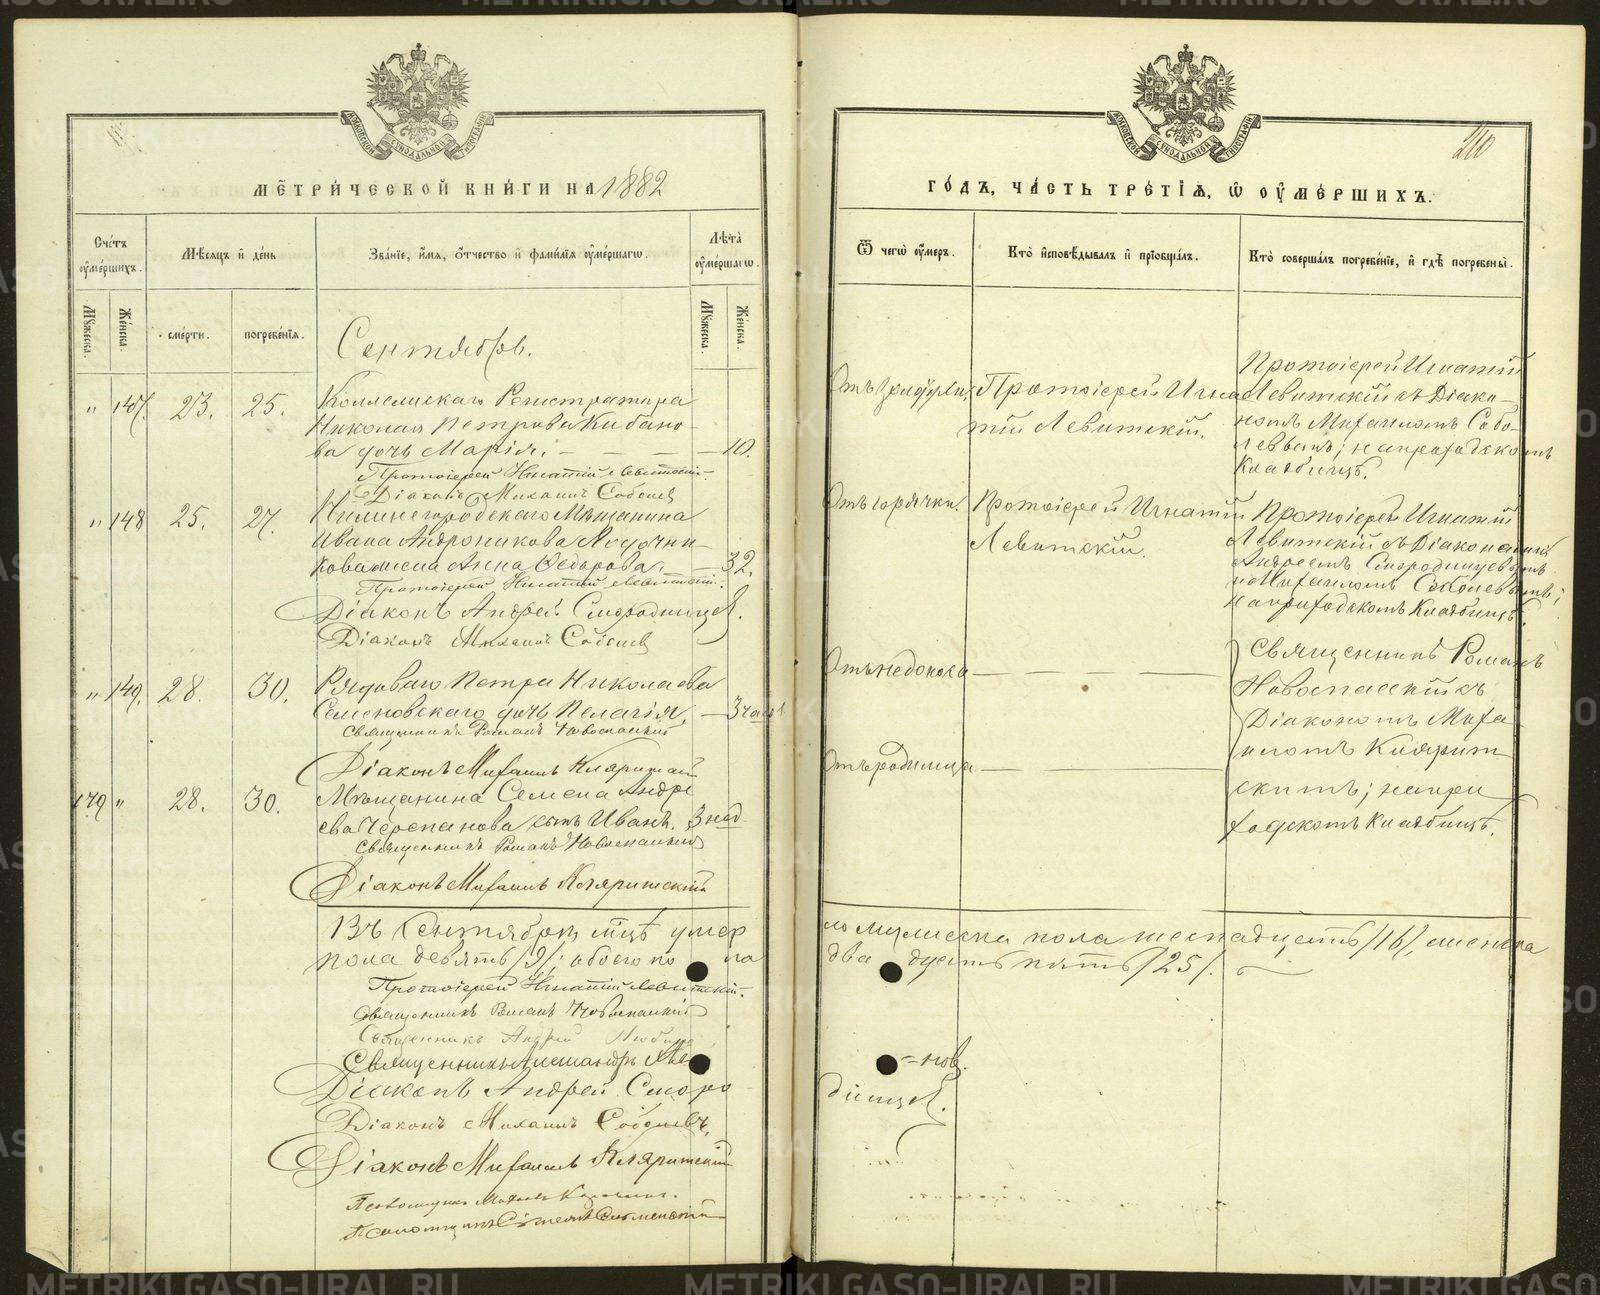 МОСКОВСКОЙ СѴНОДАЛЬНОЙ ТИПОГРАФІИ
МЕТРИ́ЧЕСКОЙ КНИ́ГИ НА 1882
Сче́тъ оу҆ме́ршихъ.
Мѣ́сяцъ и҆ де́нь
Зва́нїе, и҆́мя, ѻ҆́тчество и҆ фами́лїя оу҆ме́ршагѡ.
Лѣ́та оу҆ме́ршагѡ.
Мꙋ́жеска. Же́нска. сме́рти. погребе́нїя. Мꙋ́жеска. Же́нска.
Сентябрь.
" 147. 23. 25. Коллежскаго Регистратора
Николая Петрова Кибано-
ва дочь Марія. — — — — 10.
Протоіерей Игнатій Левитскій.
Діаконъ Михаилъ Соболев
" 148 25. 27. Нижнегородскаго Мѣщанина
Ивана Андроникова
кова жена Анна Ѳедорова. — 32.
Протоіерей Игнатій Левитскій.
Діаконъ Андрей Смородинцев.
Діаконъ Михаилъ Соболев
" 149. 28. 30. Рядоваго Петра Николаева
Семеновскаго дочь Пелагія. — 3 часа
Священникъ Романъ Новоспасскій
Діаконъ Михаилъ Кляритскій
179 " 28. 30. Мѣщанина Семена Андре
ева Черепанова сынъ Иванъ. 3 нед.
Священникъ Романъ Новоспасскій
Діаконъ Михаилъ Кляритскій
Въ Сентябрѣ м-цѣ умер
пола девять /9/; обоего по ла
Протоіерей Игнатій Левитскій.
Священникъ Романъ Новоспасскій
Священникъ Андрей
Священникъ Александръ
Діаконъ Андрей Сморо
Діаконъ Михаилъ Соболевъ.
Діаконъ Михаилъ Кляритскій
Псаломщикъ
Псаломщикъ
МОСКОВСКОЙ СѴНОДАЛЬНОЙ ТИПОГРАФІИ
210
ГО́ДЪ, ЧА́СТЬ ТРЕ́ТЇЯ, Ѡ҆ ОУ҆МЕ́РШИХЪ.
Ѿ чегѡ̀ оу҆́меръ.
Кто̀ и҆сповѣ́дывалъ и҆ прїѡбща́лъ.
Кто̀ соверша́лъ погребе́нїе, и҆ гдѣ̀ погребены̀.
Протоіерей Игнатій Игна
тій Левитскій.
Протоіерей Игнатій
Левитскій съ Діако-
номъ Михаиломъ Собо-
левымъ; на приходскомъ
Кладбищѣ.
Отъ горячки. Протоіерей Игнатій
Левитскій.
Протоіерей Игнатій
Левитскій съ Діаконами
Андреемъ Смородинцевымъ
и Михаиломъ Соболевымъ;
на приходскомъ Кладбищѣ.
Отъ недоноса — — — —
Отъ родимца — — —
Священникъ Романъ
Новоспасскій съ
Діакономъ Миха
иломъ Клярит
скимъ; на при
ходскомъ Кладбищѣ.
ло мужеска пола шестнадцать /16/, женска
двадцать пять /25/.
=нов.
динцев.
METRIKI.GASO-URAL.RU